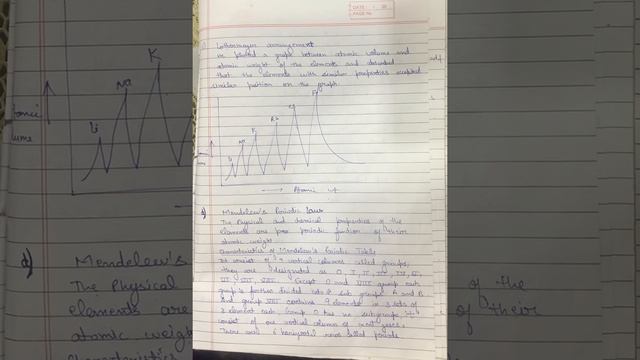 DATE
PAGE No.
Lothermeyer arrangement
He plotted a graph between atomic volume and
atomic weight of the elements and
that the elements with similar properties occupied
similar position on the graph.
Li
Na
K
Rb
Cs
Fr
→ Atomic wt
d) Mendeleev's Periodic Law
The Physical and chemical properties of the
elements are periodic function of their
atomic weight
Characteristics of Mendeleev's Periodic Table
It consist of 9 vertical columns called groups,
they are designated as O, I, II, III, IV, V,
VI, VII, VIII. Except O and VIII group each
group is further divided into 2 sub groups A and B
And group VIII contains 9 elements in 3 sets of
3 element each Group O has no subgroups It
consist of one vertical columns of inert gases.
There were 6 horizontal rows called periods
Li
Na
K
d) Mendeleev's
The Physical
elements are
atomic weight
of the
of their